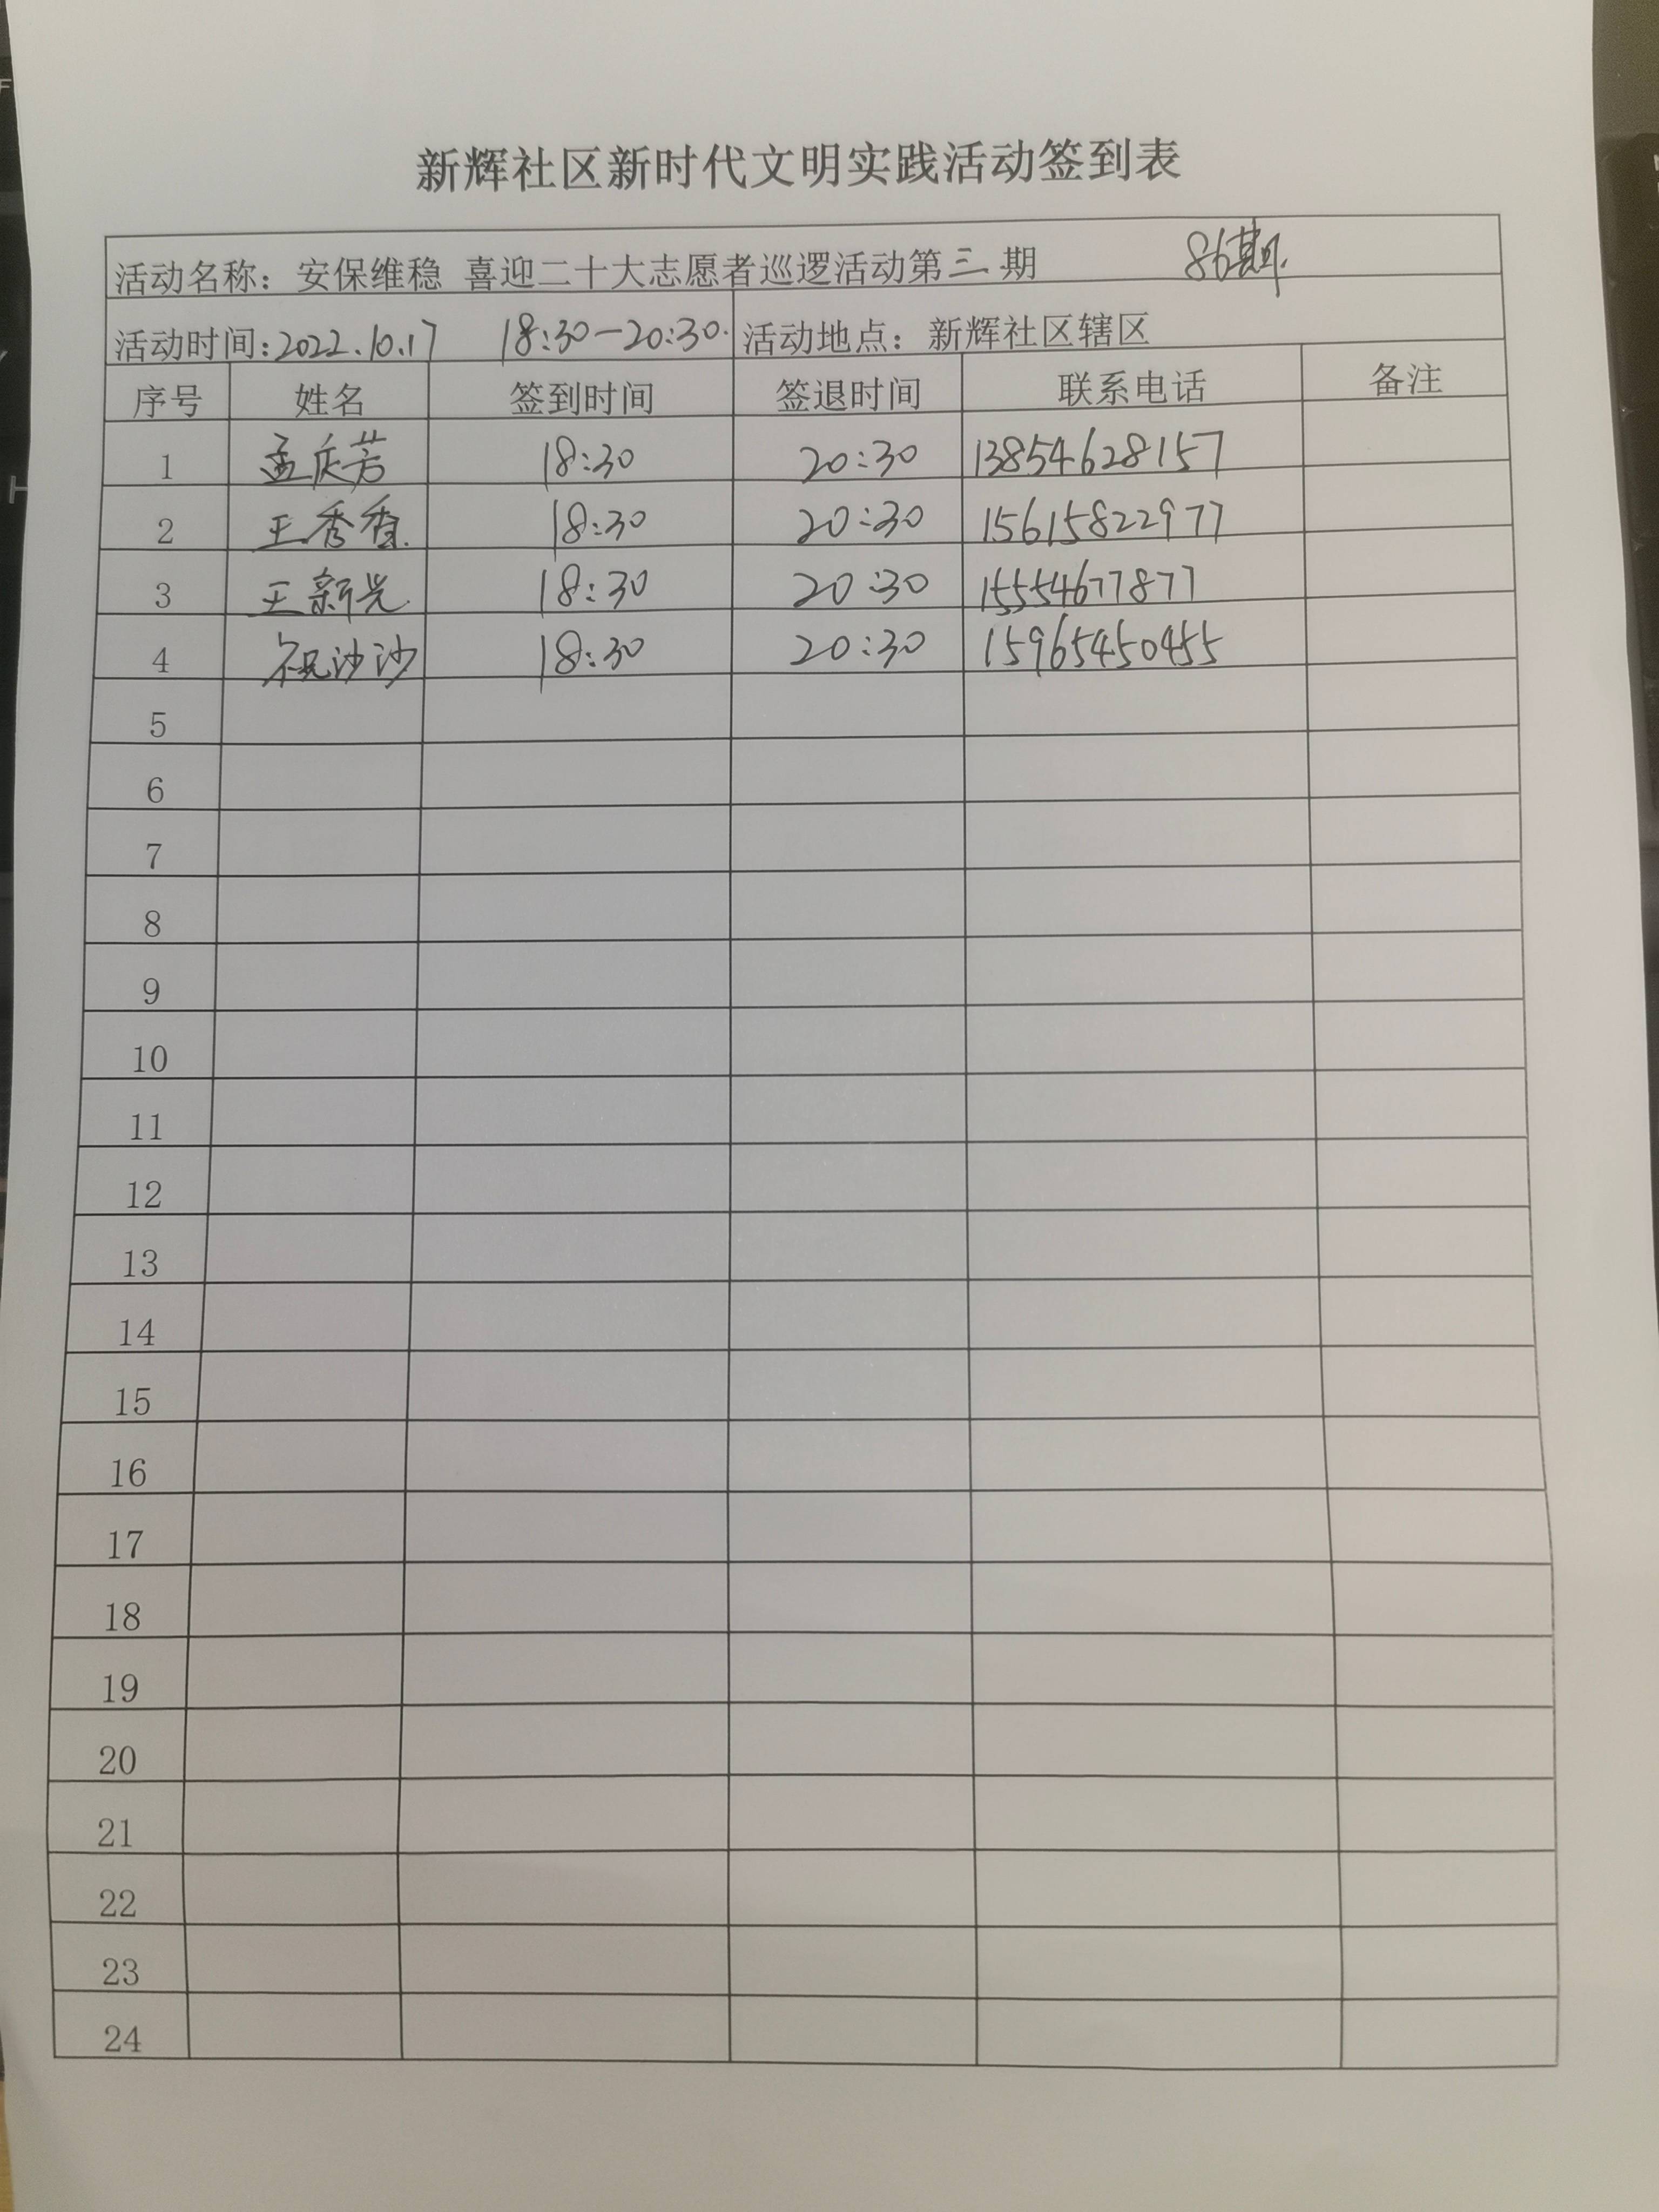 新辉社区新时代文明实践活动签到表
活动名称：安保维稳 喜迎二十大志愿者巡逻活动第三期 86期
活动时间：2022.10.17 18:30—20:30. 活动地点：新辉社区辖区
序号 姓名 签到时间 签退时间 联系电话 备注
1 孟庆芳 18:30 20:30 13854628157
2 王秀香 18:30 20:30 15615822977
3 王新光 18:30 20:30 15554677877
4 祝沙沙 18:30 20:30 15965450455
5
6
7
8
9
10
11
12
13
14
15
16
17
18
19
20
21
22
23
24